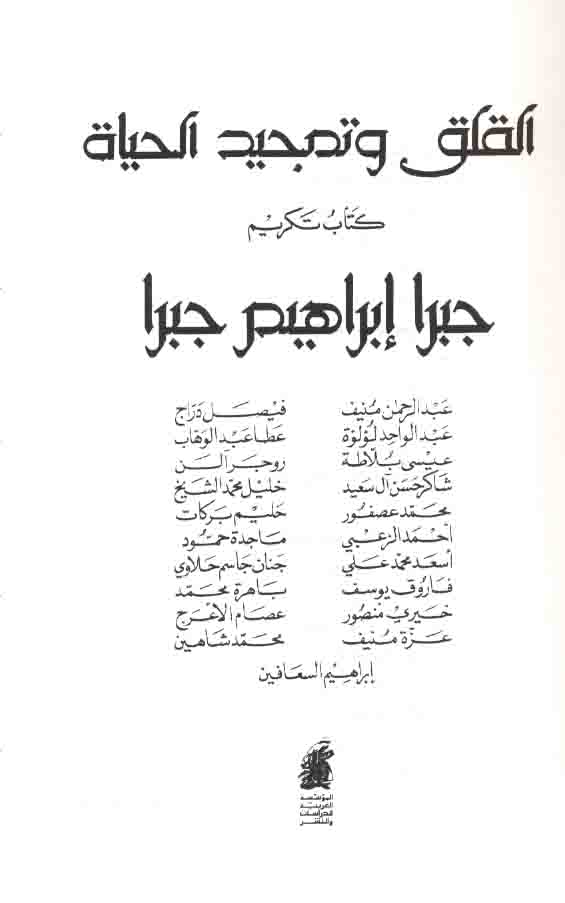 القلق وتمجيد الحياة
كتاب تكريم
جبرا إبراهيم جبرا
عبد الرحمن منيف فيصل درّاج
عبد الواحد لؤلؤة عطا عبد الوهاب
عيسى بلّاطة روجر آلن
شاكر حسن آل سعيد خليل محمد الشيخ
محمد عصفور حليم بركات
أحمد الزعبي ماجدة حمّود
أسعد محمد علي جنان جاسم حلاوي
فاروق يوسف باهرة محمد
خيري منصور عصام الأعرج
عزّة منيف محمد شاهين
إبراهيم السعافين
المؤسسة
العربية
للدراسات
والنشر